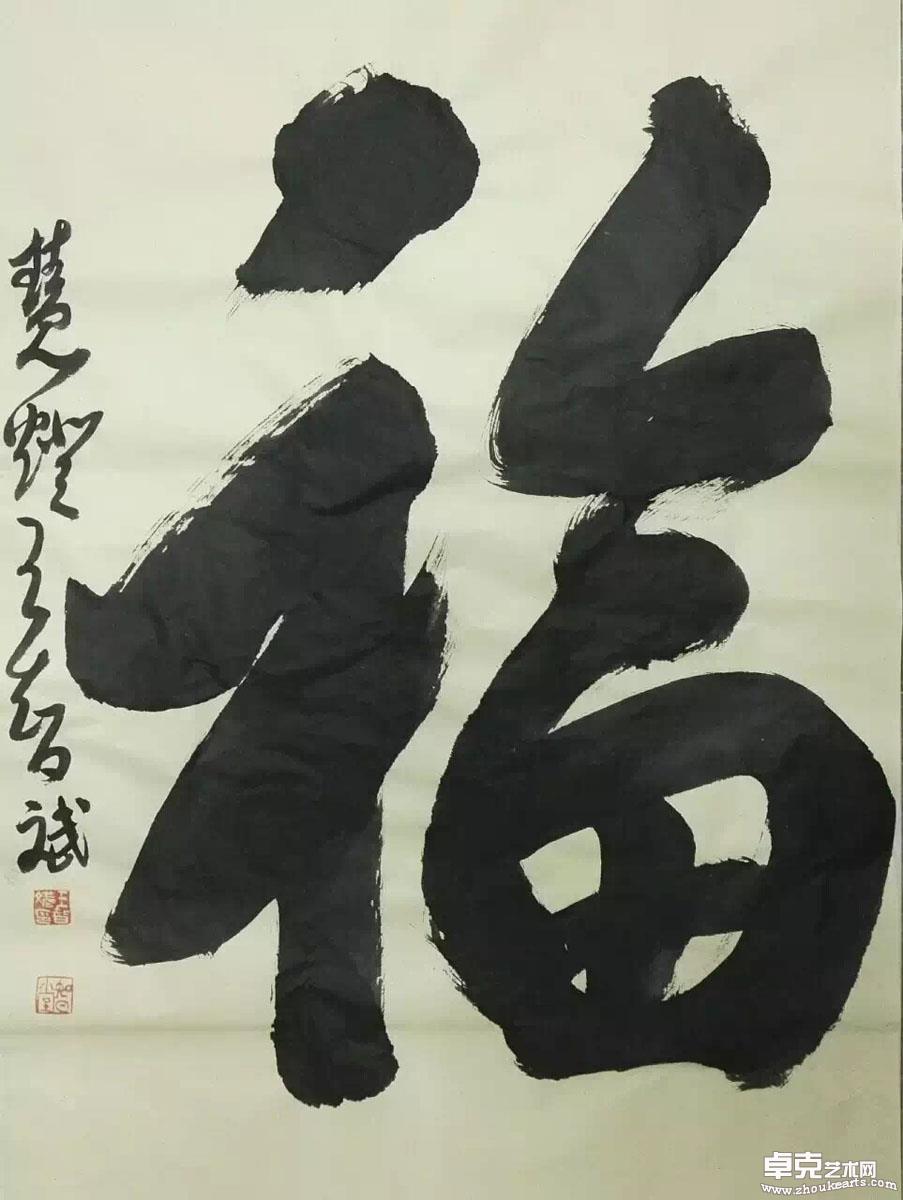 福
慧灯王智斌
卓克艺术网
www.zhoukearts.com